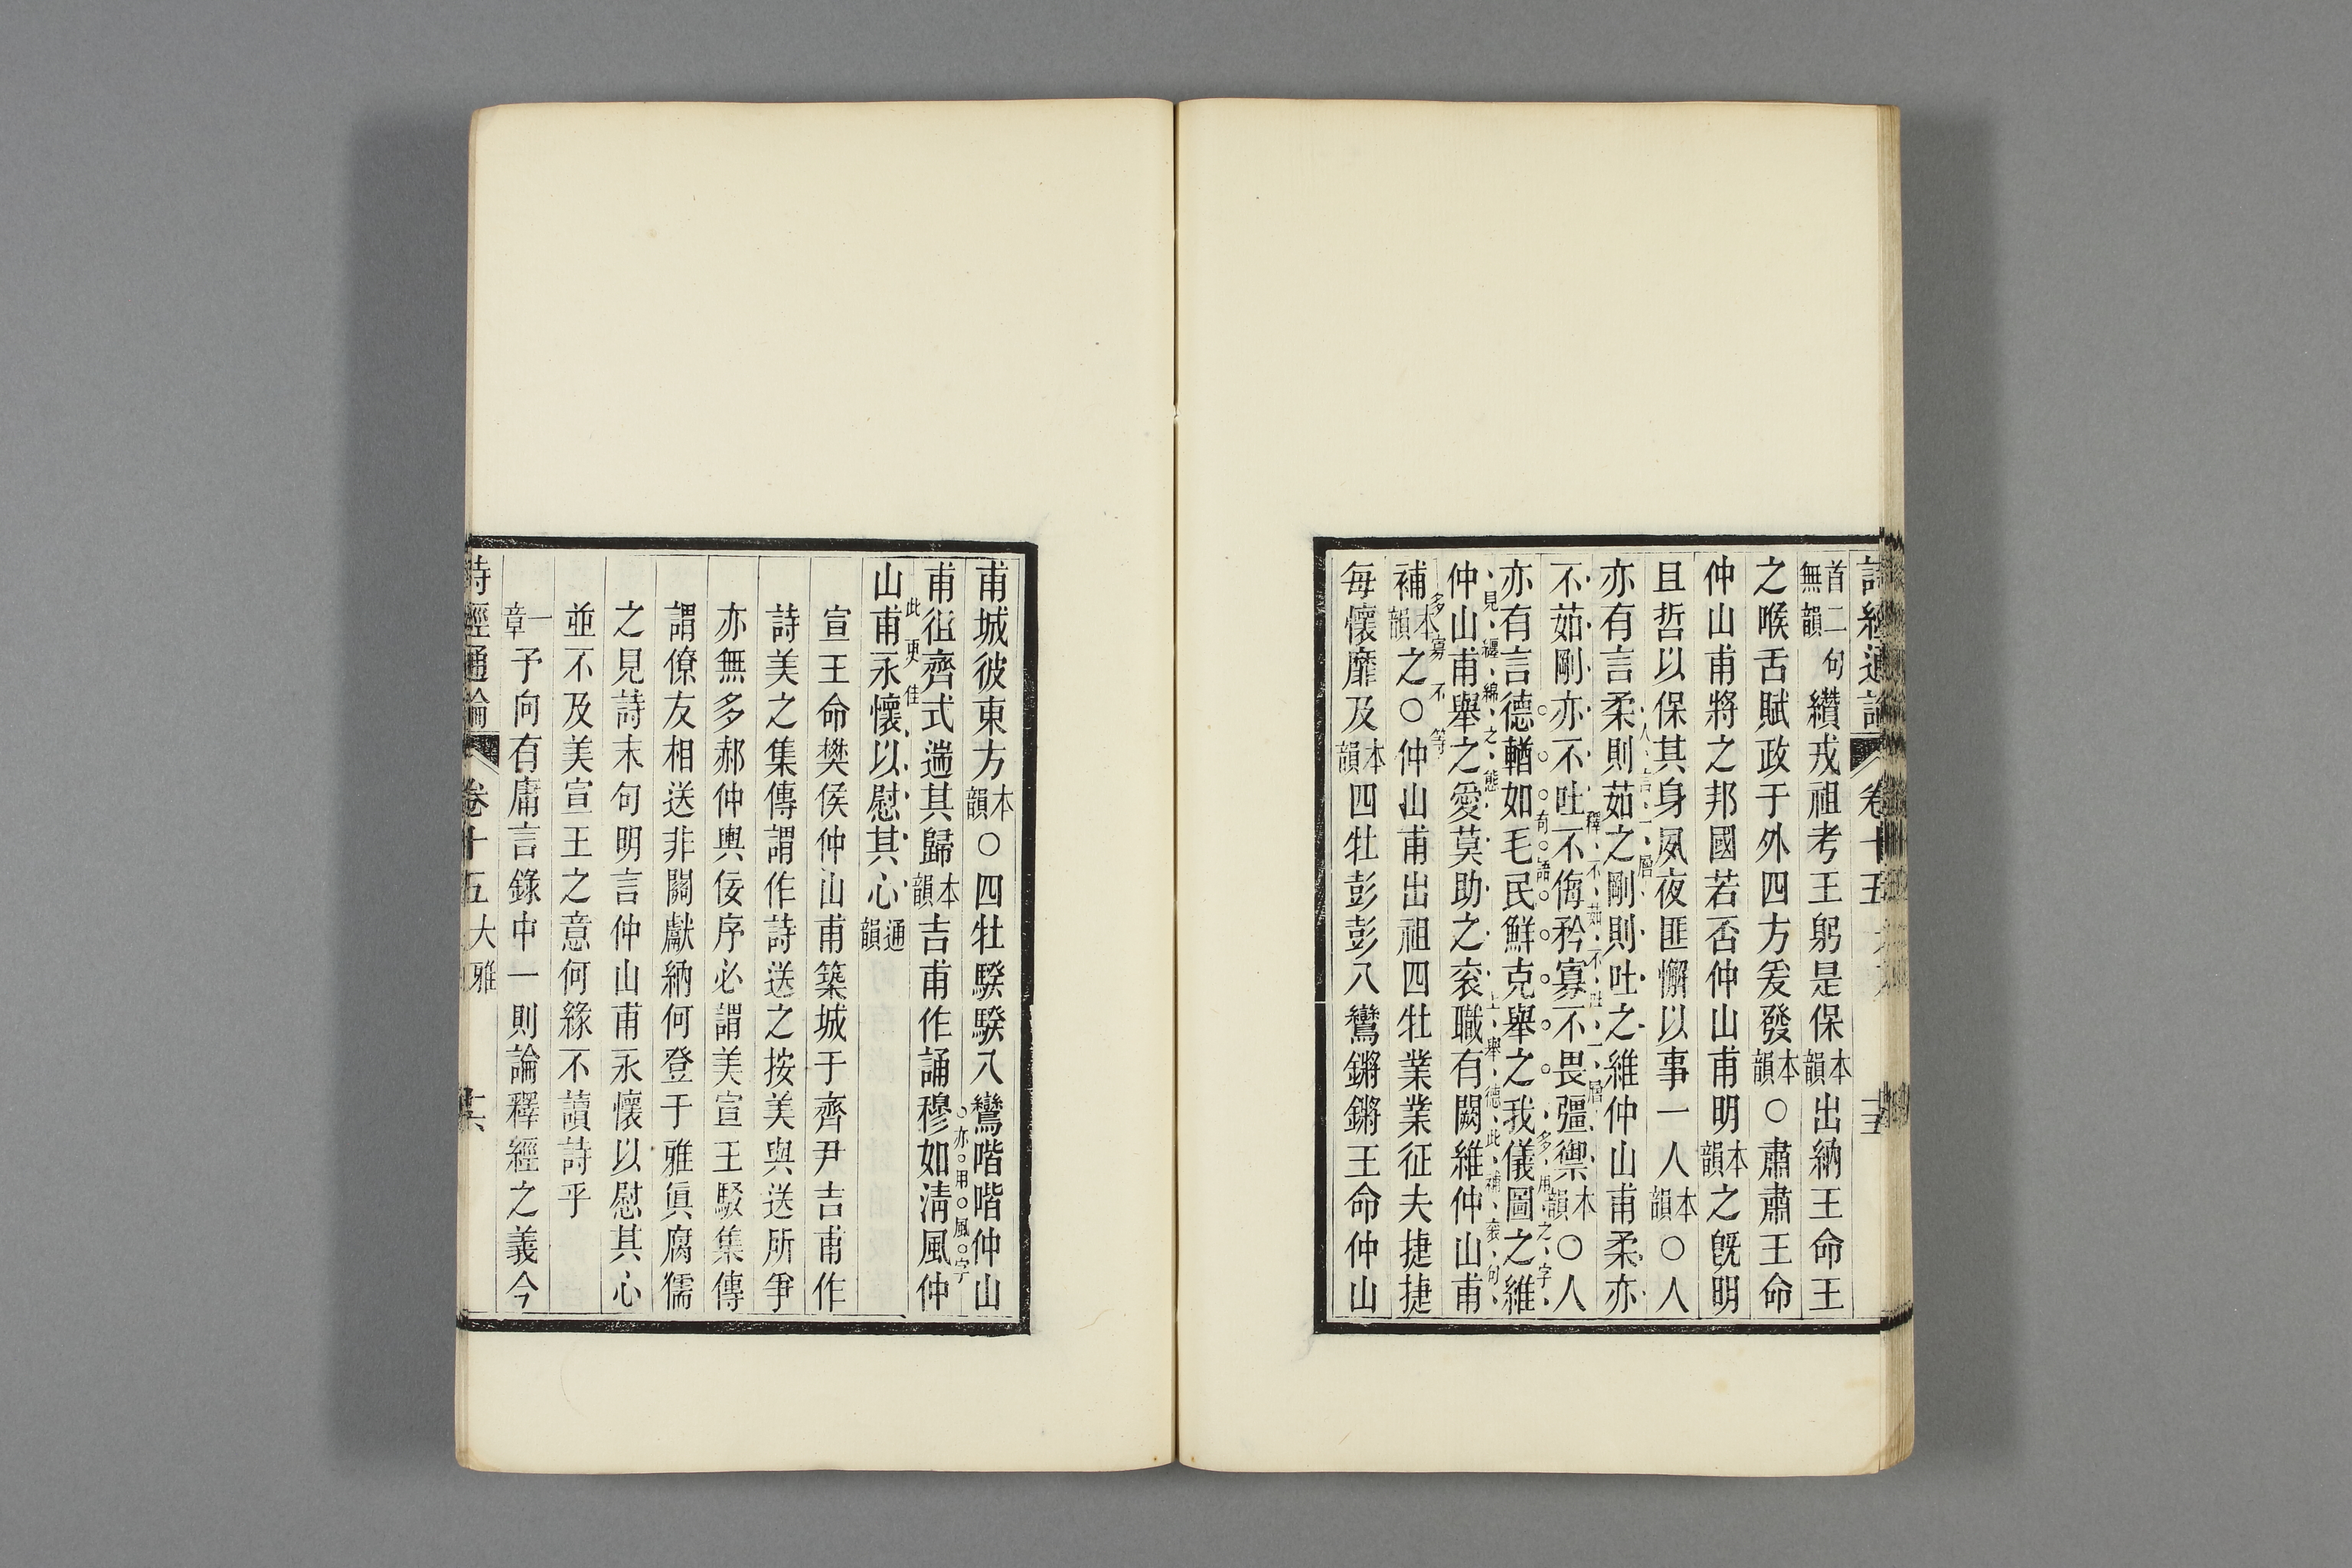 詩經通論 卷十五
首二句無韻纘戎祖考王躬是保本韻出納王命王
之喉舌賦政于外四方爰發本韻○肅肅王命
仲山甫將之邦國若否仲山甫明本韻之旣明
且哲以保其身夙夜匪懈以事一人本韻○人
人言一層
亦有言柔則茹之剛則吐之維仲山甫柔亦
釋不茹不吐一層
不茹剛亦不吐不侮矜寡不畏彊禦本韻○人
奇語 多用之字
亦有言德輶如毛民鮮克舉之我儀圖之維
見纏綿之態 上舉德此補袞句
仲山甫舉之愛莫助之袞職有闕維仲山甫
多寡不等
補本韻之○仲山甫出祖四牡業業征夫捷捷
每懷靡及本韻四牡彭彭八鸞鏘鏘王命仲山
甫城彼東方本韻○四牡騤騤八鸞喈喈仲山
亦用風字
甫徂齊式遄其歸本韻吉甫作誦穆如淸風仲
此更佳
山甫永懷以慰其心通韻
宣王命樊侯仲山甫築城于齊尹吉甫作
詩美之集傳謂作詩送之按美與送所爭
亦無多郝仲輿佞序必謂美宣王駁集傳
謂僚友相送非關獻納何登于雅眞腐儒
之見詩末句明言仲山甫永懷以慰其心
並不及美宣王之意何緣不讀詩乎
一章予向有庸言錄中一則論釋經之義今
詩經通論 卷十五 大雅 十六